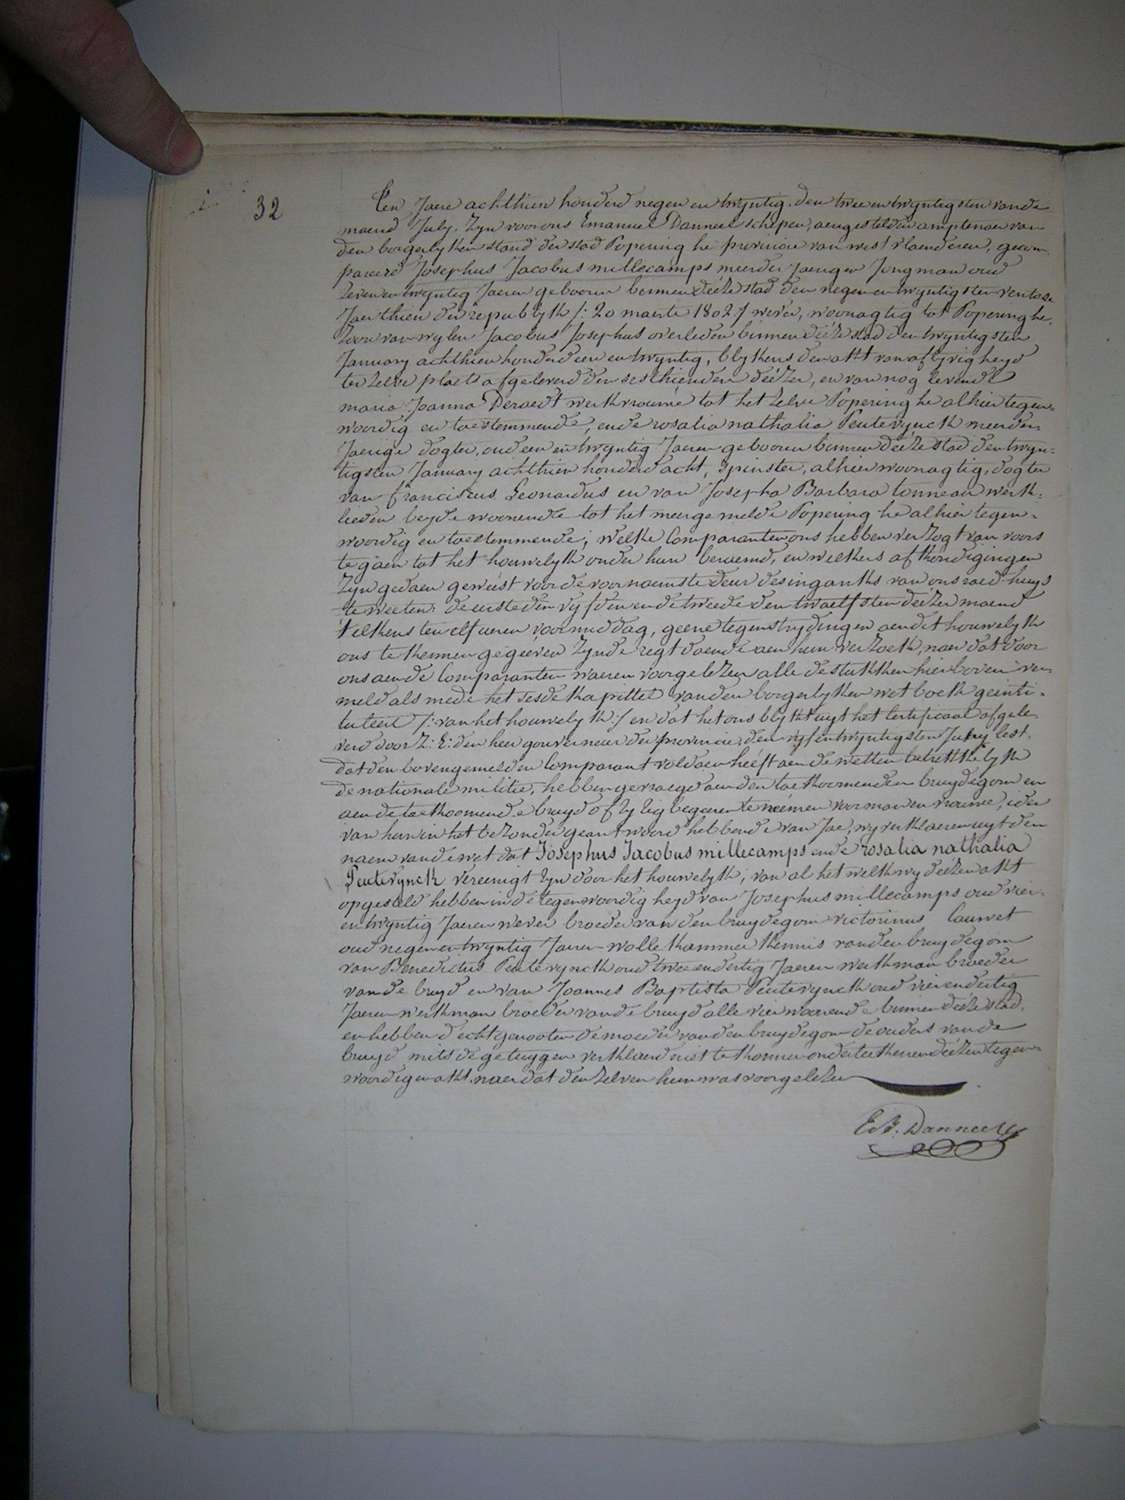 32
Een Jaere achthien honderd negen en twyntig den twee en twyntigsten van de
maend July. Zyn voor ons Emanuel Danneel schepen, aengestelden amptenaer van
den borgerlyken stand der stad Popering he provincie van westvlaenderen, gecom
pareerd Josephus Jacobus millecamps meerder jaeriger Jongman oud
zeven en twyntig Jaeren gebooren binnen deéze stad den negen en twyntigsten ventose
Jaer thien der republyk /: 20 maerte 1802 :/ wever, woonagtig tot Popering he
zoon van wylen Jacobus Josephus overleden binnen deéze stad den twyntigsten
January achthien honderd een en twyntig, blykens den akt van aflyvigheyd
ter zelve plaets afgeleverd den sesthienden deézer, en van nog levende
maria Joanna Deraedt werkvrouwe tot het zelve Popering he alhier tegen-
woordig en toestemmende, ende rosalia nathalia Peutevynck meerder
Jaerige dogter, oud een en twyntig Jaeren gebooren binnen deéze stad den twyn-
tigsten January achthien honderd acht, spinster, alhier woonagtig, dogter
van franciscus Leonardus en van Josepha Barbara tonneau werk-
lieden beyde woonende tot het meergemelde Popering he alhier tegen-
woordig en toestemmende, welke Comparanten ons hebben verzogt van voors
te gaen tot het houwelyk onder hun beraemd, en welkers afkondigingen
zyn gedaen geweést voor de voornaemste deur des ingankhs van ons raed-huys
te weeten: de eerste den vyfden en de tweede den twaelfsten deézer maend
telkens ten elf ueren voormiddag, geene tegenstrydingen aen dit houwelyk
ons te kennen gegeéven zynde regt doende aen hun verzoek, naer dat door
ons aen de Comparanten waeren voorgelezen alle de stukken hier boven ver-
meld als mede het sesde kapittel van den borgerlyken wetboek geinti-
tuleert /: van het houwelyk :/ en dat het ons blykt uyt het certificaat afgele-
verd door Z: E: den heer gouverneur der provincie, den vyf en twyntigsten Juny lest,
dat den bovengemelden Comparant voldaen heéft aen de wetten betrekkelyk
de nationale militie, hebben gevraegd aen den toekoomenden bruydegom en
aen de toekoomende bruyd of zy zig begeeren te neémen voor man en vrouwe, ider
van hun in het bezonder geantwoord hebbende van Jae, wy verklaeren uyt den
naem van de wet dat Josephus Jacobus millecamps ende rosalia nathalia
Peutevynck vereenigt zyn door het houwelyk, van al het welk wy deézen akt
opgesteld hebben in de tegenwoordigheyd van Josephus millecamps oud vier-
en twyntig Jaeren wever broeder van den bruydegom victorinus Cauwet
oud negen en twyntig Jaeren wollekammer kennis van den bruydegom
van Benedictus Peutevynck oud twee en dertig Jaeren werkman broeder
van de bruyd en van Joannes Baptista Peutevynck oud vier en dertig
Jaeren werkman broeder van de bruyd alle vier woonende binnen deéze stad,
en hebben d'echtgenooten de moeder van den bruydegom de ouders van de
bruyd mits de getuygen verklaerd niet te konnen onderteekenen deézen tegen-
woordigen akt, naer dat den zelven hun was voorgelezen
E. Danneel